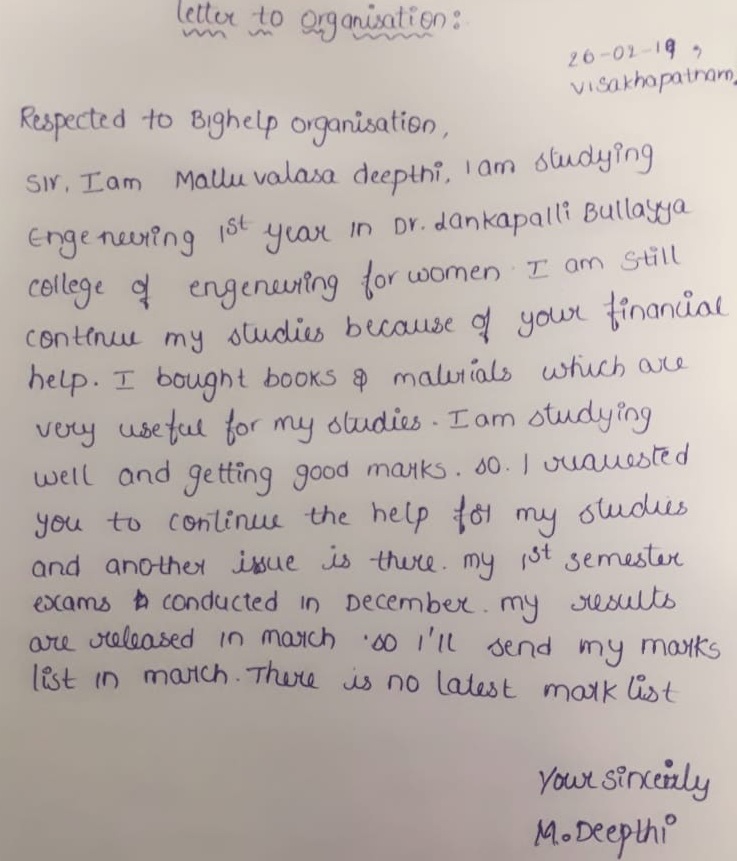 letter to organisation:
26-02-19,
visakhapatnam.
Respected to Bighelp organisation,
Sir, I am Malluvalasa deepthi, I am studying
Engeneering 1st year in Dr. Lankapalli Bullayya
college of engeneering for women. I am still
continue my studies because of your financial
help. I bought books & materials which are
very useful for my studies. I am studying
well and getting good marks. so. I ruquested
you to continue the help for my studies
and another issue is there. my 1st semester
exams conducted in December. my results
are released in march. so I'll send my marks
list in march. There is no latest mark list
Your sincerly
M. Deepthi